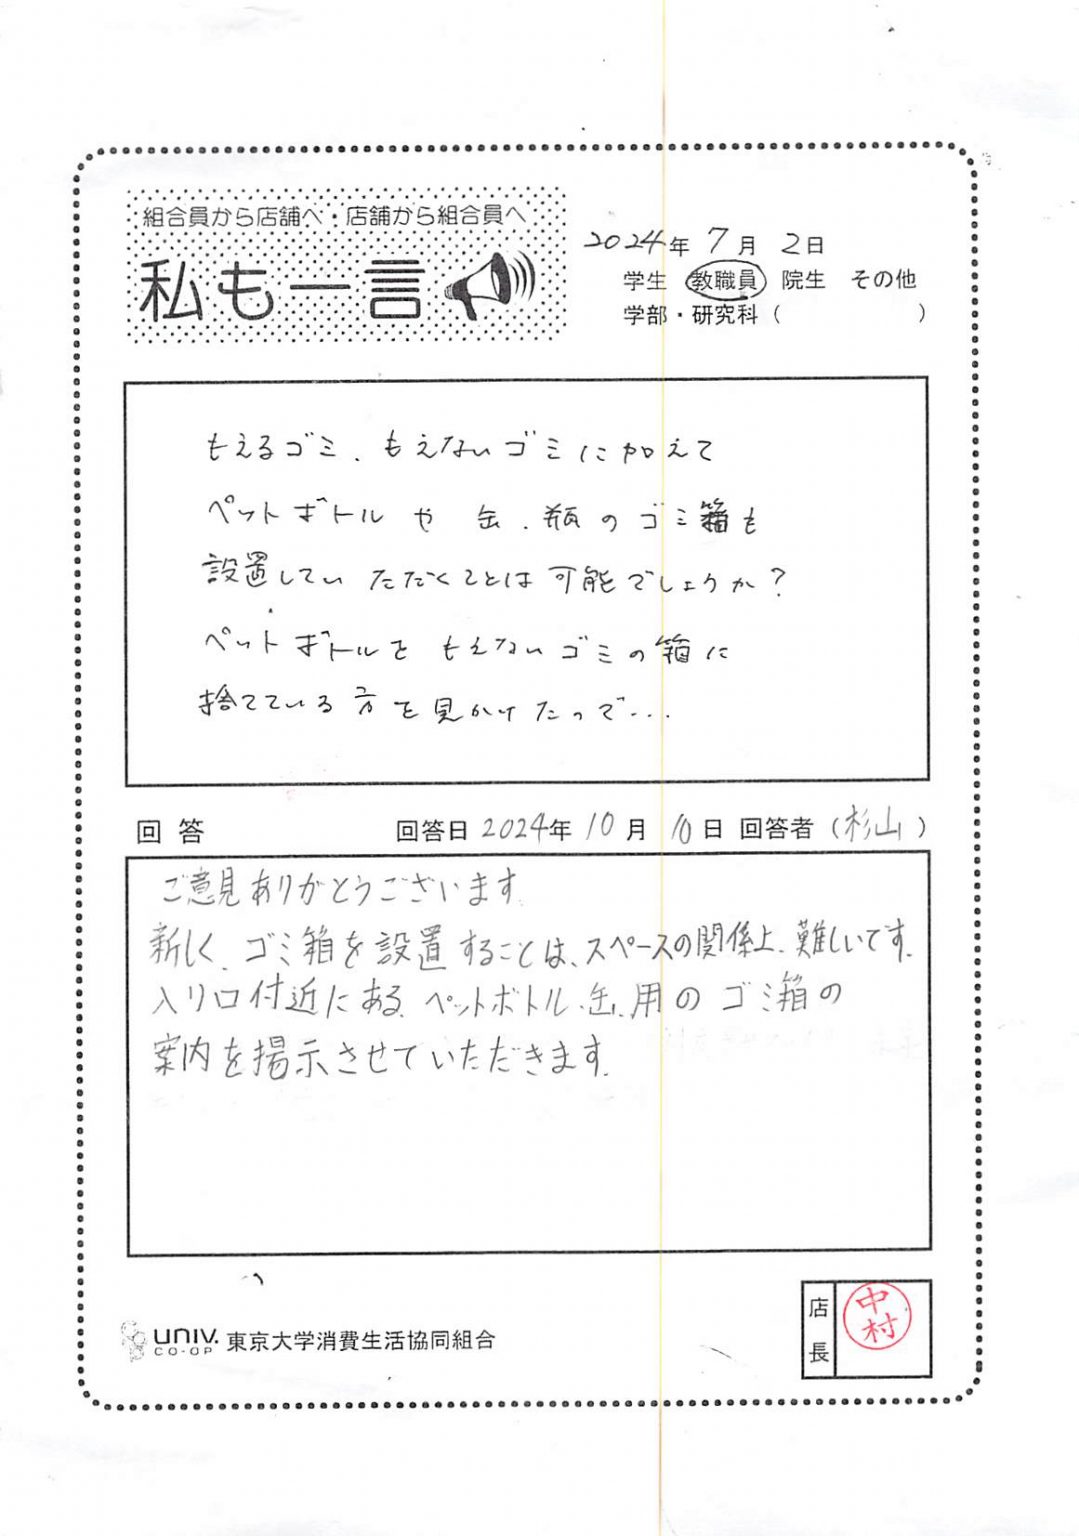 組合員から店舗へ・店舗から組合員へ
私も一言
2024年 7月 2日
学生 教職員 院生 その他
学部・研究科（ ）
もえるゴミ、もえないゴミに加えて
ペットボトルや 缶、瓶のゴミ箱も
設置していただくことは可能でしょうか？
ペットボトルを もえないゴミの箱に
捨てている方を見かけたので...
回答 回答日 2024年 10月 10日 回答者（杉山）
ご意見ありがとうございます。
新しく、ゴミ箱を設置することは、スペースの関係上、難しいです。
入り口付近にある、ペットボトル、缶、用のゴミ箱の
案内を掲示させていただきます。
UNIV. CO-OP 東京大学消費生活協同組合
店長 中村